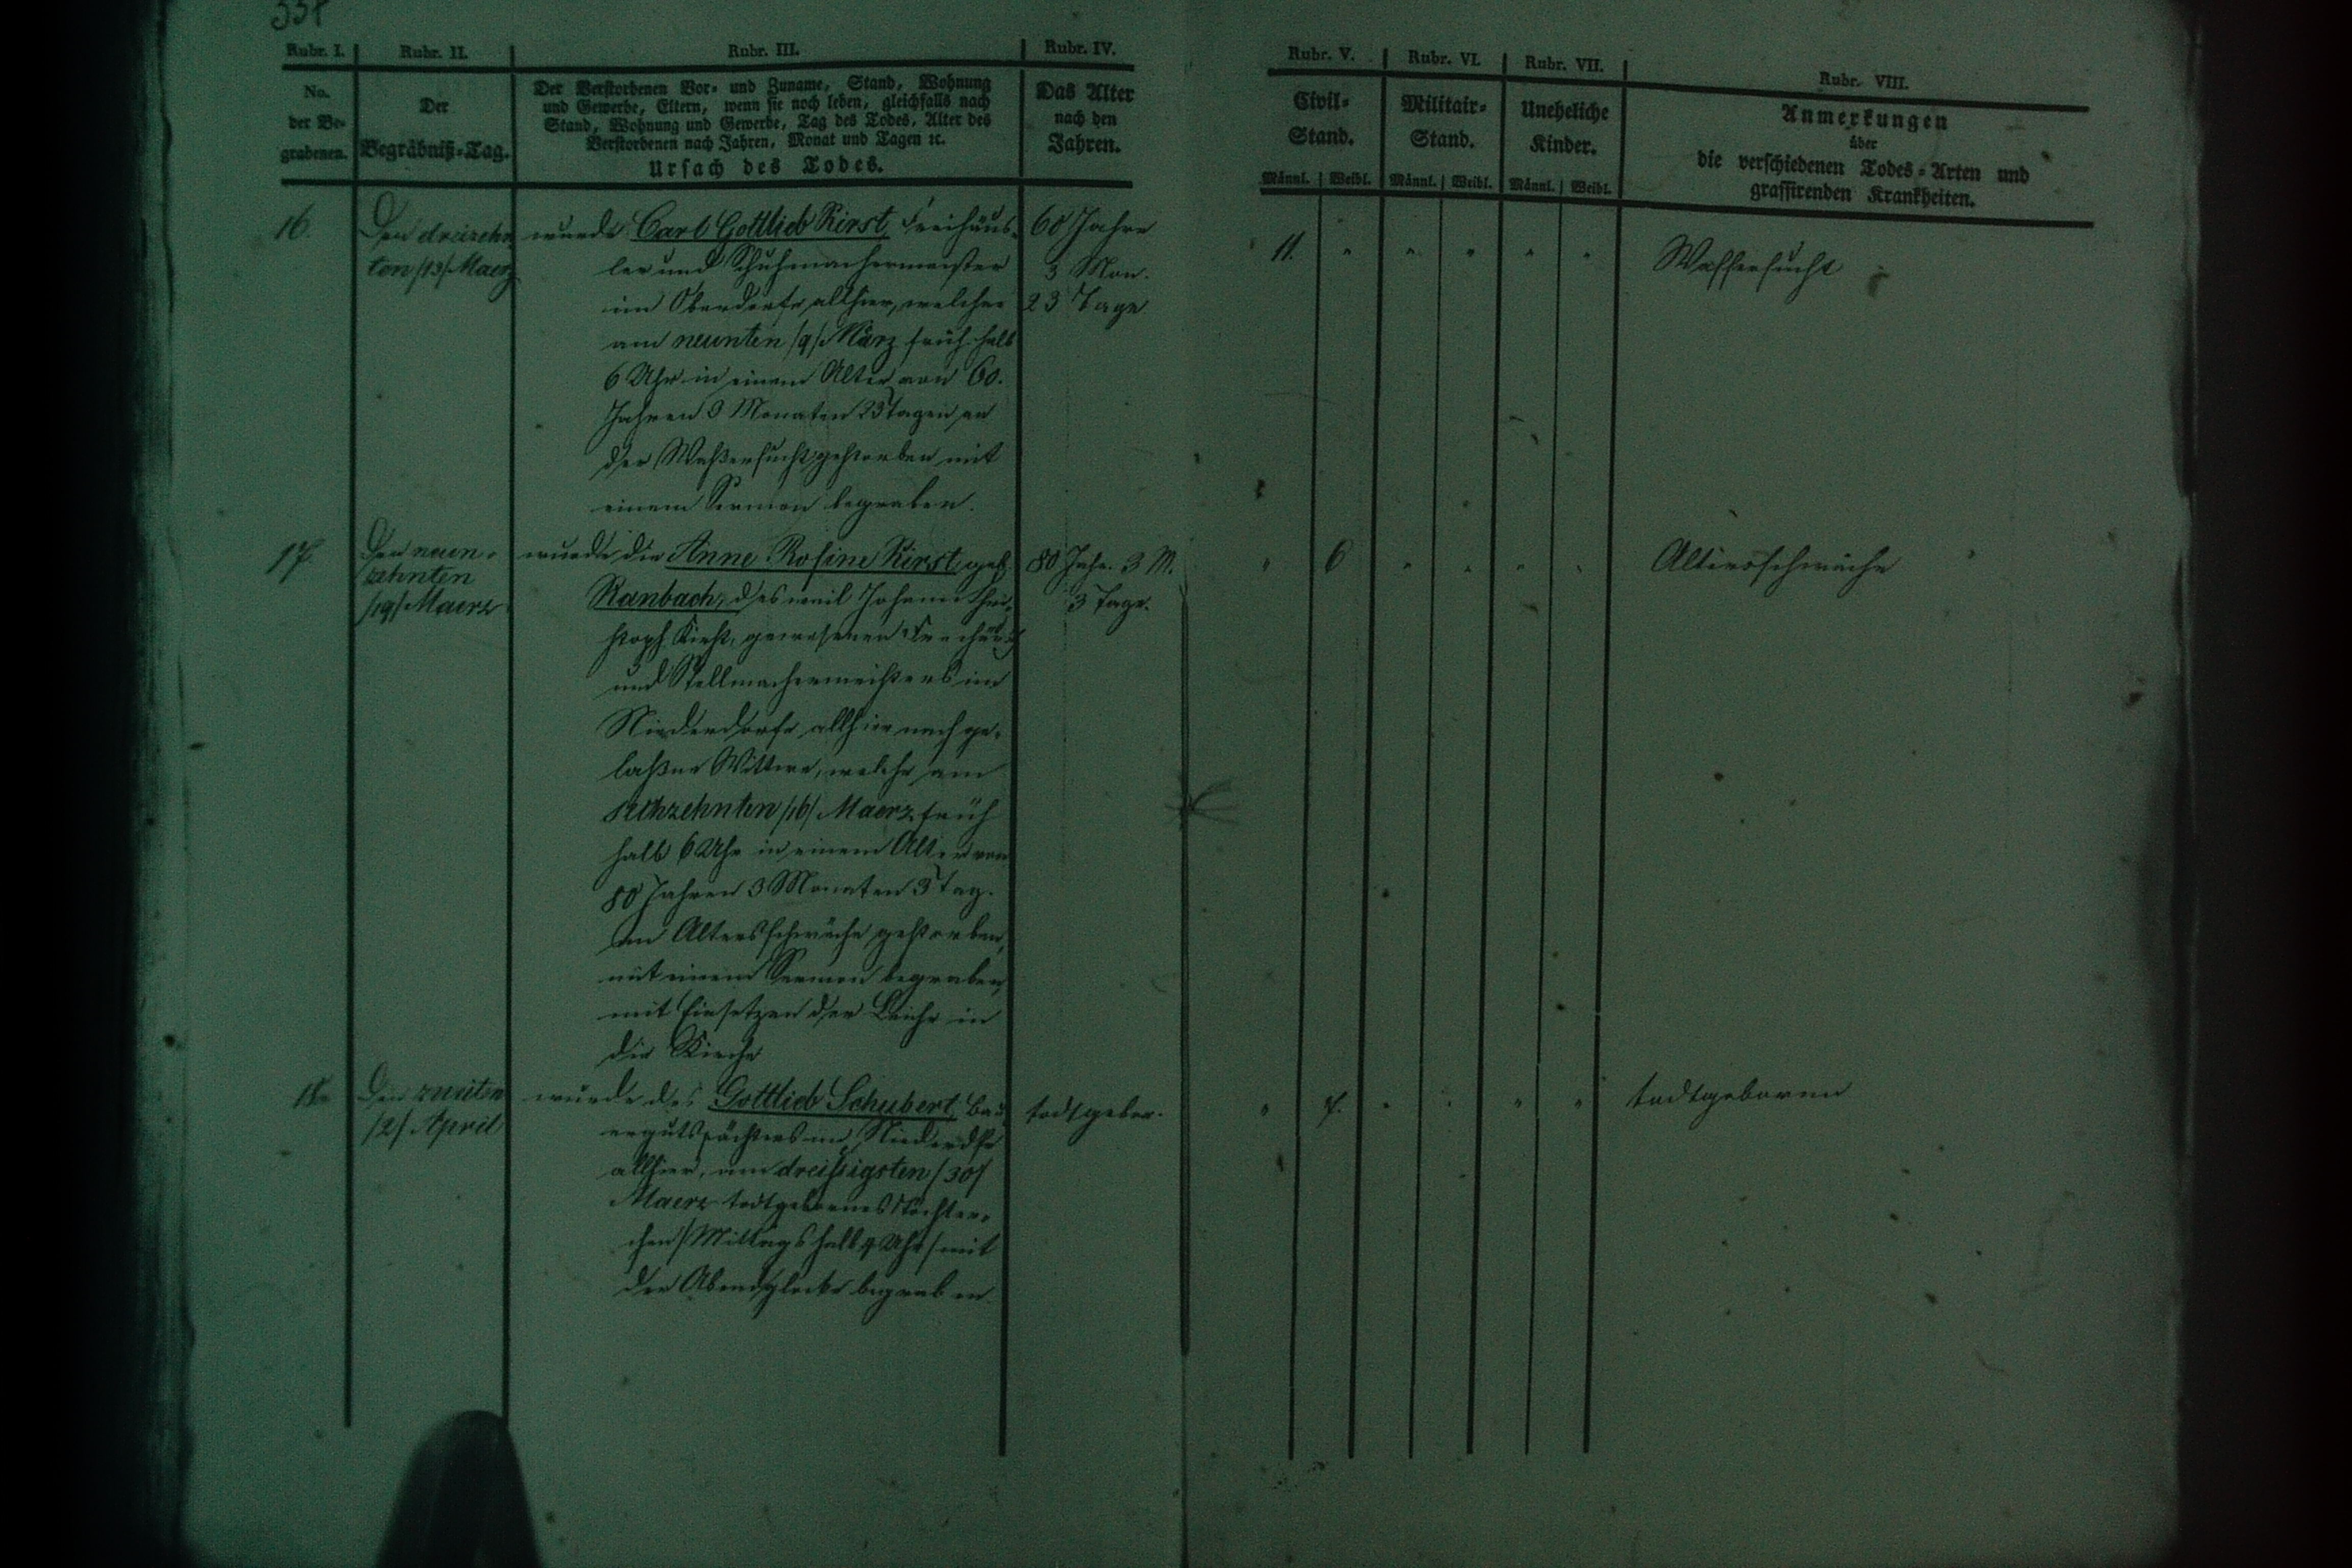 Rubr. I. Rubr. II. Rubr. III. Rubr. IV. Rubr. V. Rubr. VI. Rubr. VII. Rubr. VIII.
No. der Be-grabenen.
Der Begräbniß-Tag.
Der Verstorbenen Vor- und Zuname, Stand, Wohnung
und Gewerbe, Eltern, wenn sie noch leben, gleichfalls nach
Stand, Wohnung und Gewerbe, Tag des Todes, Alter des
Verstorbenen nach Jahren, Monat und Tagen ꝛc.
Ursach des Todes.
Das Alter
nach den
Jahren.
Civil-
Stand.
Männl. Weibl.
Militair-
Stand.
Männl. Weibl.
Uneheliche
Kinder.
Männl. Weibl.
Anmerkungen
über
die verschiedenen Todes-Arten und
grassirenden Krankheiten.
16.
Den dreizehn
ten /13/ Maerz
wurde Carl Gottlieb Kirst, Freihäus-
ler und Schuhmachermeister
im Oberdorfe allhier, welcher
am neunten /9/ März früh halb
6 Uhr in einem Alter von 60.
Jahren 3 Monaten 23 Tagen an
der Waßersucht gestorben mit
einem Sermon begraben.
60 Jahre
3 Mon.
23 Tage
11. " " " " "
Wassersucht
17.
Den neun-
zehnten
/19/ Maerz
wurde die Anne Rosine Kirst geb.
Ranbach, des weil Johann Chri-
stoph Kirst, gewesenen Freihäusl.
und Stellmachermeisters im
Niederdorfe allhier nachge-
laßne Wittwe, welche am
sechzehnten /16/ Maerz früh
halb 6 Uhr in einem Alter von
80 Jahren 3 Monaten 3 Tag.
an Altersschwäche gestorben,
mit einem Sermon begraben,
mit Einsetzen der Leiche in
die Kirche
80 Jahr. 3 M.
3 Tage.
" 6 " " " "
Altersschwäche
18.
Den zweiten
/2/ April
wurde des Gottlieb Schubert, Bau-
ergutspächters im Niederdfe
allhier, am dreißigsten /30/
Maerz todtgebornes Töchter-
chen /Mittags halb 4 Uhr/ mit
der Abendglocke begraben
todtgebor.
" 7. " " " "
todtgeboren